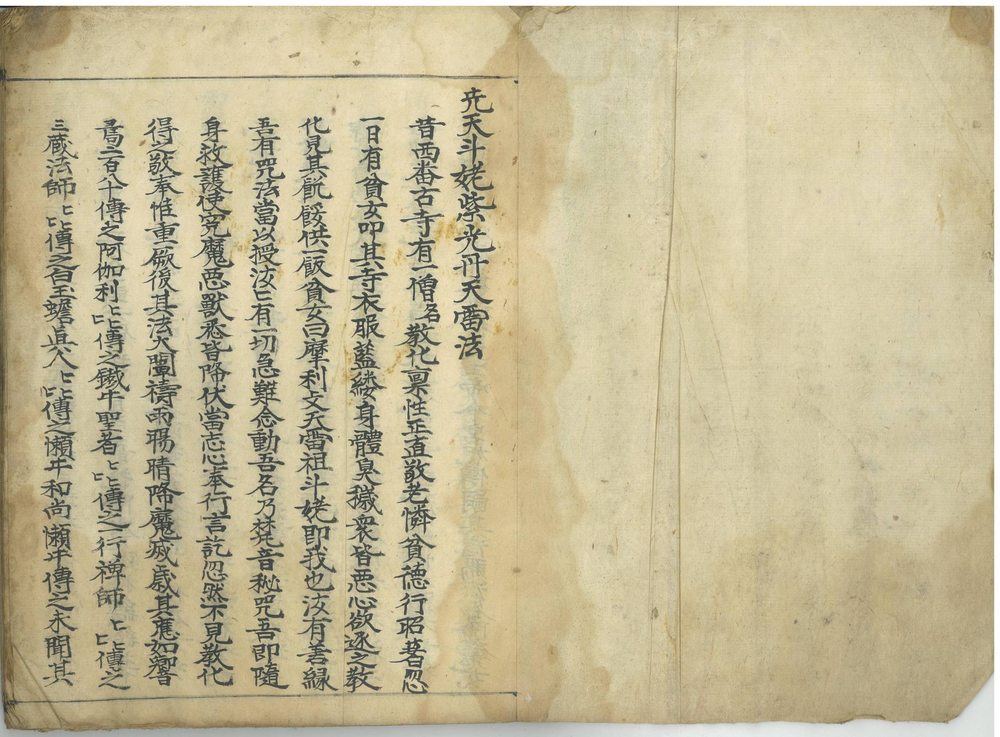 先天斗姥紫光丹天雷法
昔西番古寺有一僧名教化禀性正直敬老憐貧德行昭著忽
一日有貧女叩其寺衣服藍縷身體臭穢衆皆惡心欲逐之教
化見其飢餒供一飯貧女曰摩利攴天雷祖斗姥即我也汝有善緣
吾有咒法當以授汝匕有一切急難念動吾名乃梵音秘咒吾即隨
身救護使冤魔惡獸悉皆降伏當志心奉行言訖忽然不見教化
得之敬奉惟重厥後其法大闡禱雨暘晴降魔滅歳其應如響
焉二百八十傳之阿伽利匕匕傳之鐵牛聖者匕匕傳之一行禅師匕匕傳之
三蔵法師匕匕傳之白玉蟾眞人匕匕傳之懶牛和尚懶牛傳之未聞其